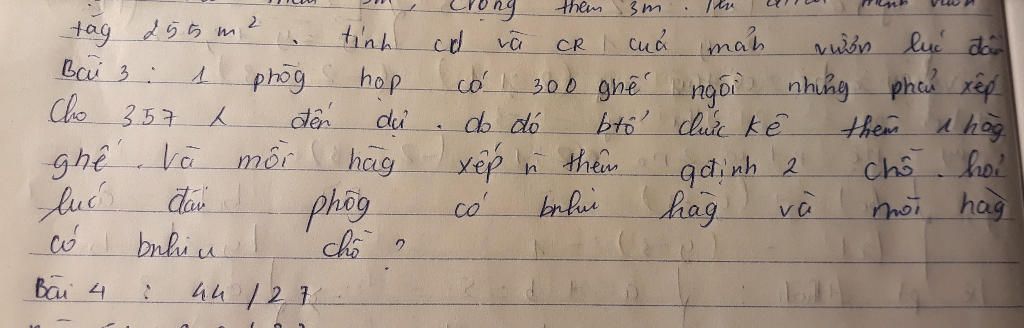 thêm 3m, crộng thêm 3m.
tăg 255m². tính cd và CR cuả mảh vườn lúc đâù
Bài 3 : 1 phòg họp có 300 ghế ngôì nhưng phaỉ xếp
Cho 357 đến dự. do đó btổ chức kê thêm 1 hàg
ghế. Và môĩ hàg xếp n̄ thêm qđịnh 2 chỗ. hoỉ
lúc đâù phòg có bnhiu hàg và môĩ hàg
có bnhiu chỗ ?
Bài 4 : 44/27